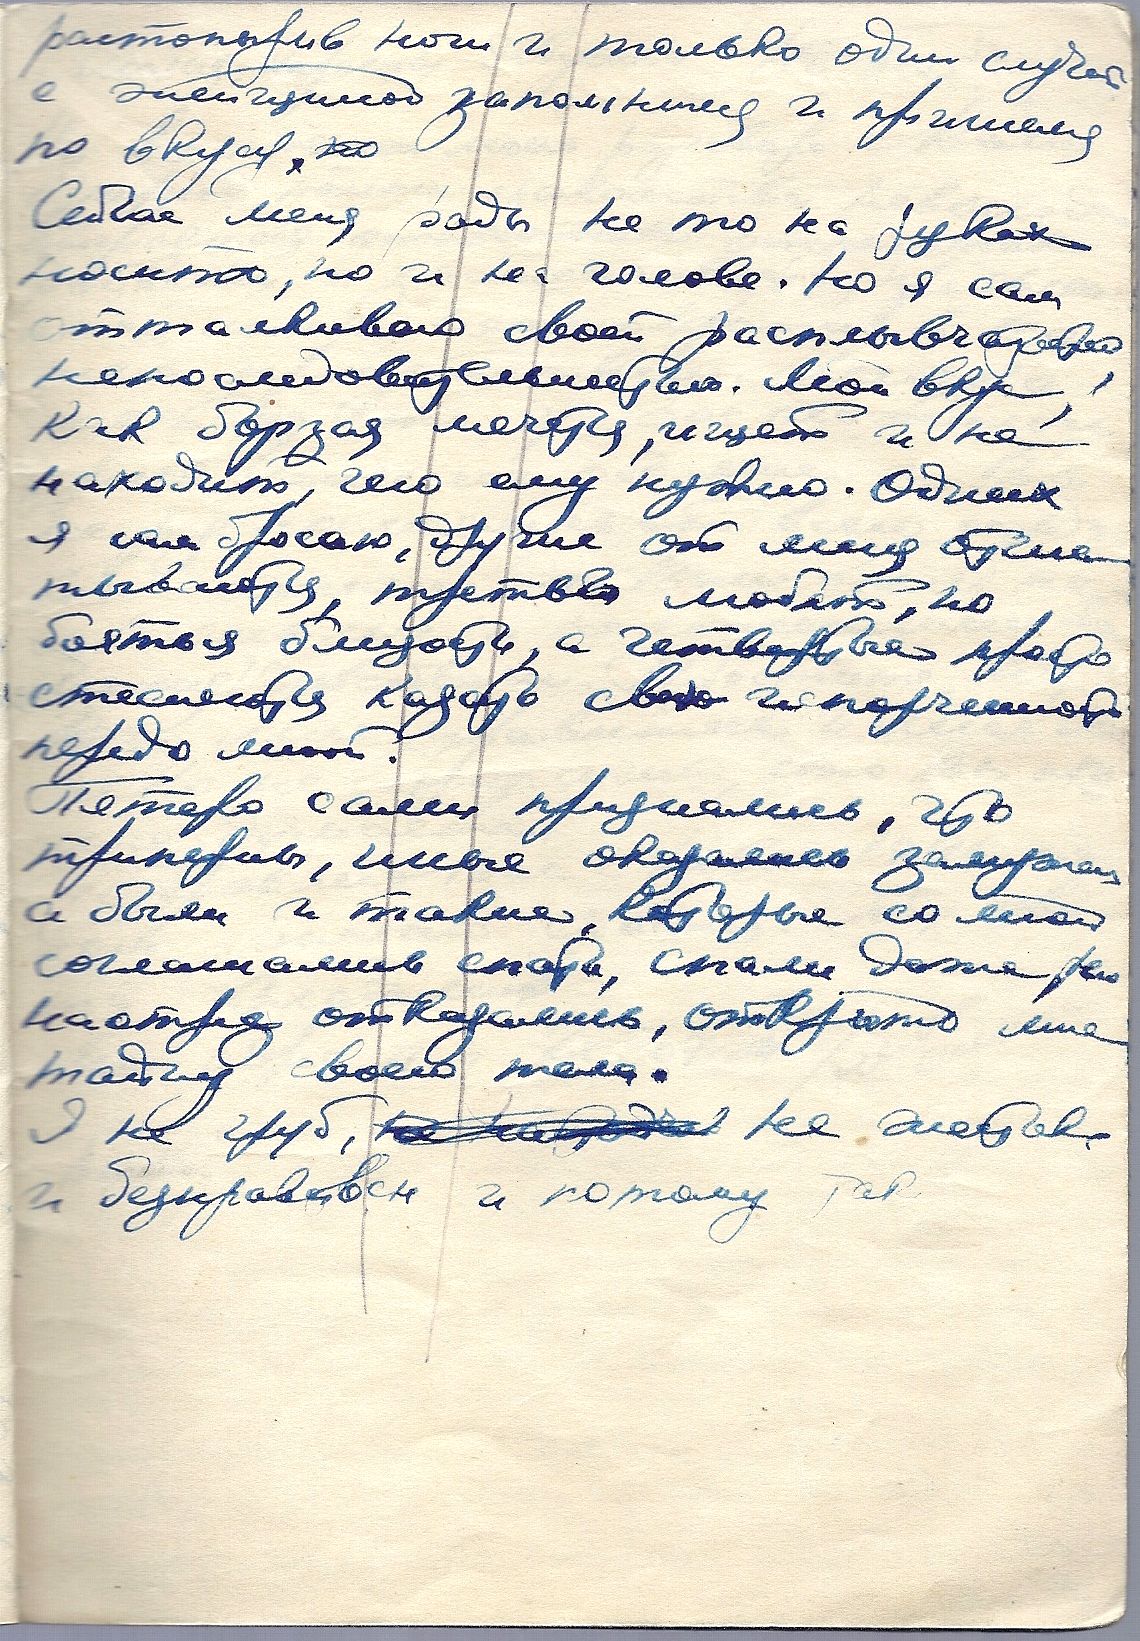 растопырив ноги и только один случай
с женщиной запомнился и пришелся
по вкусу, но
Сейчас меня рады не то на руках
носить, но и на голове. Но я сам
отталкиваю своей расплывчатостью
непоследовательностью. Мой вкус,
как борзая мечется, ищет и не
находит, чего ему нужно. Одних
я сам бросаю, другие от меня отша
тываются, третьи любят, но
бояться близости, а четвертые просто
стесняются казать свою испорченность
передо мной.
Пятеро сами признались, что
триперны, иные оказались замужем
а были и такие, которые со мной
соглашались спать, спали даже, но
наотрез отказались, открыто мне
тайну своего тела.
Я не груб, не не
и безнравствен и потому так